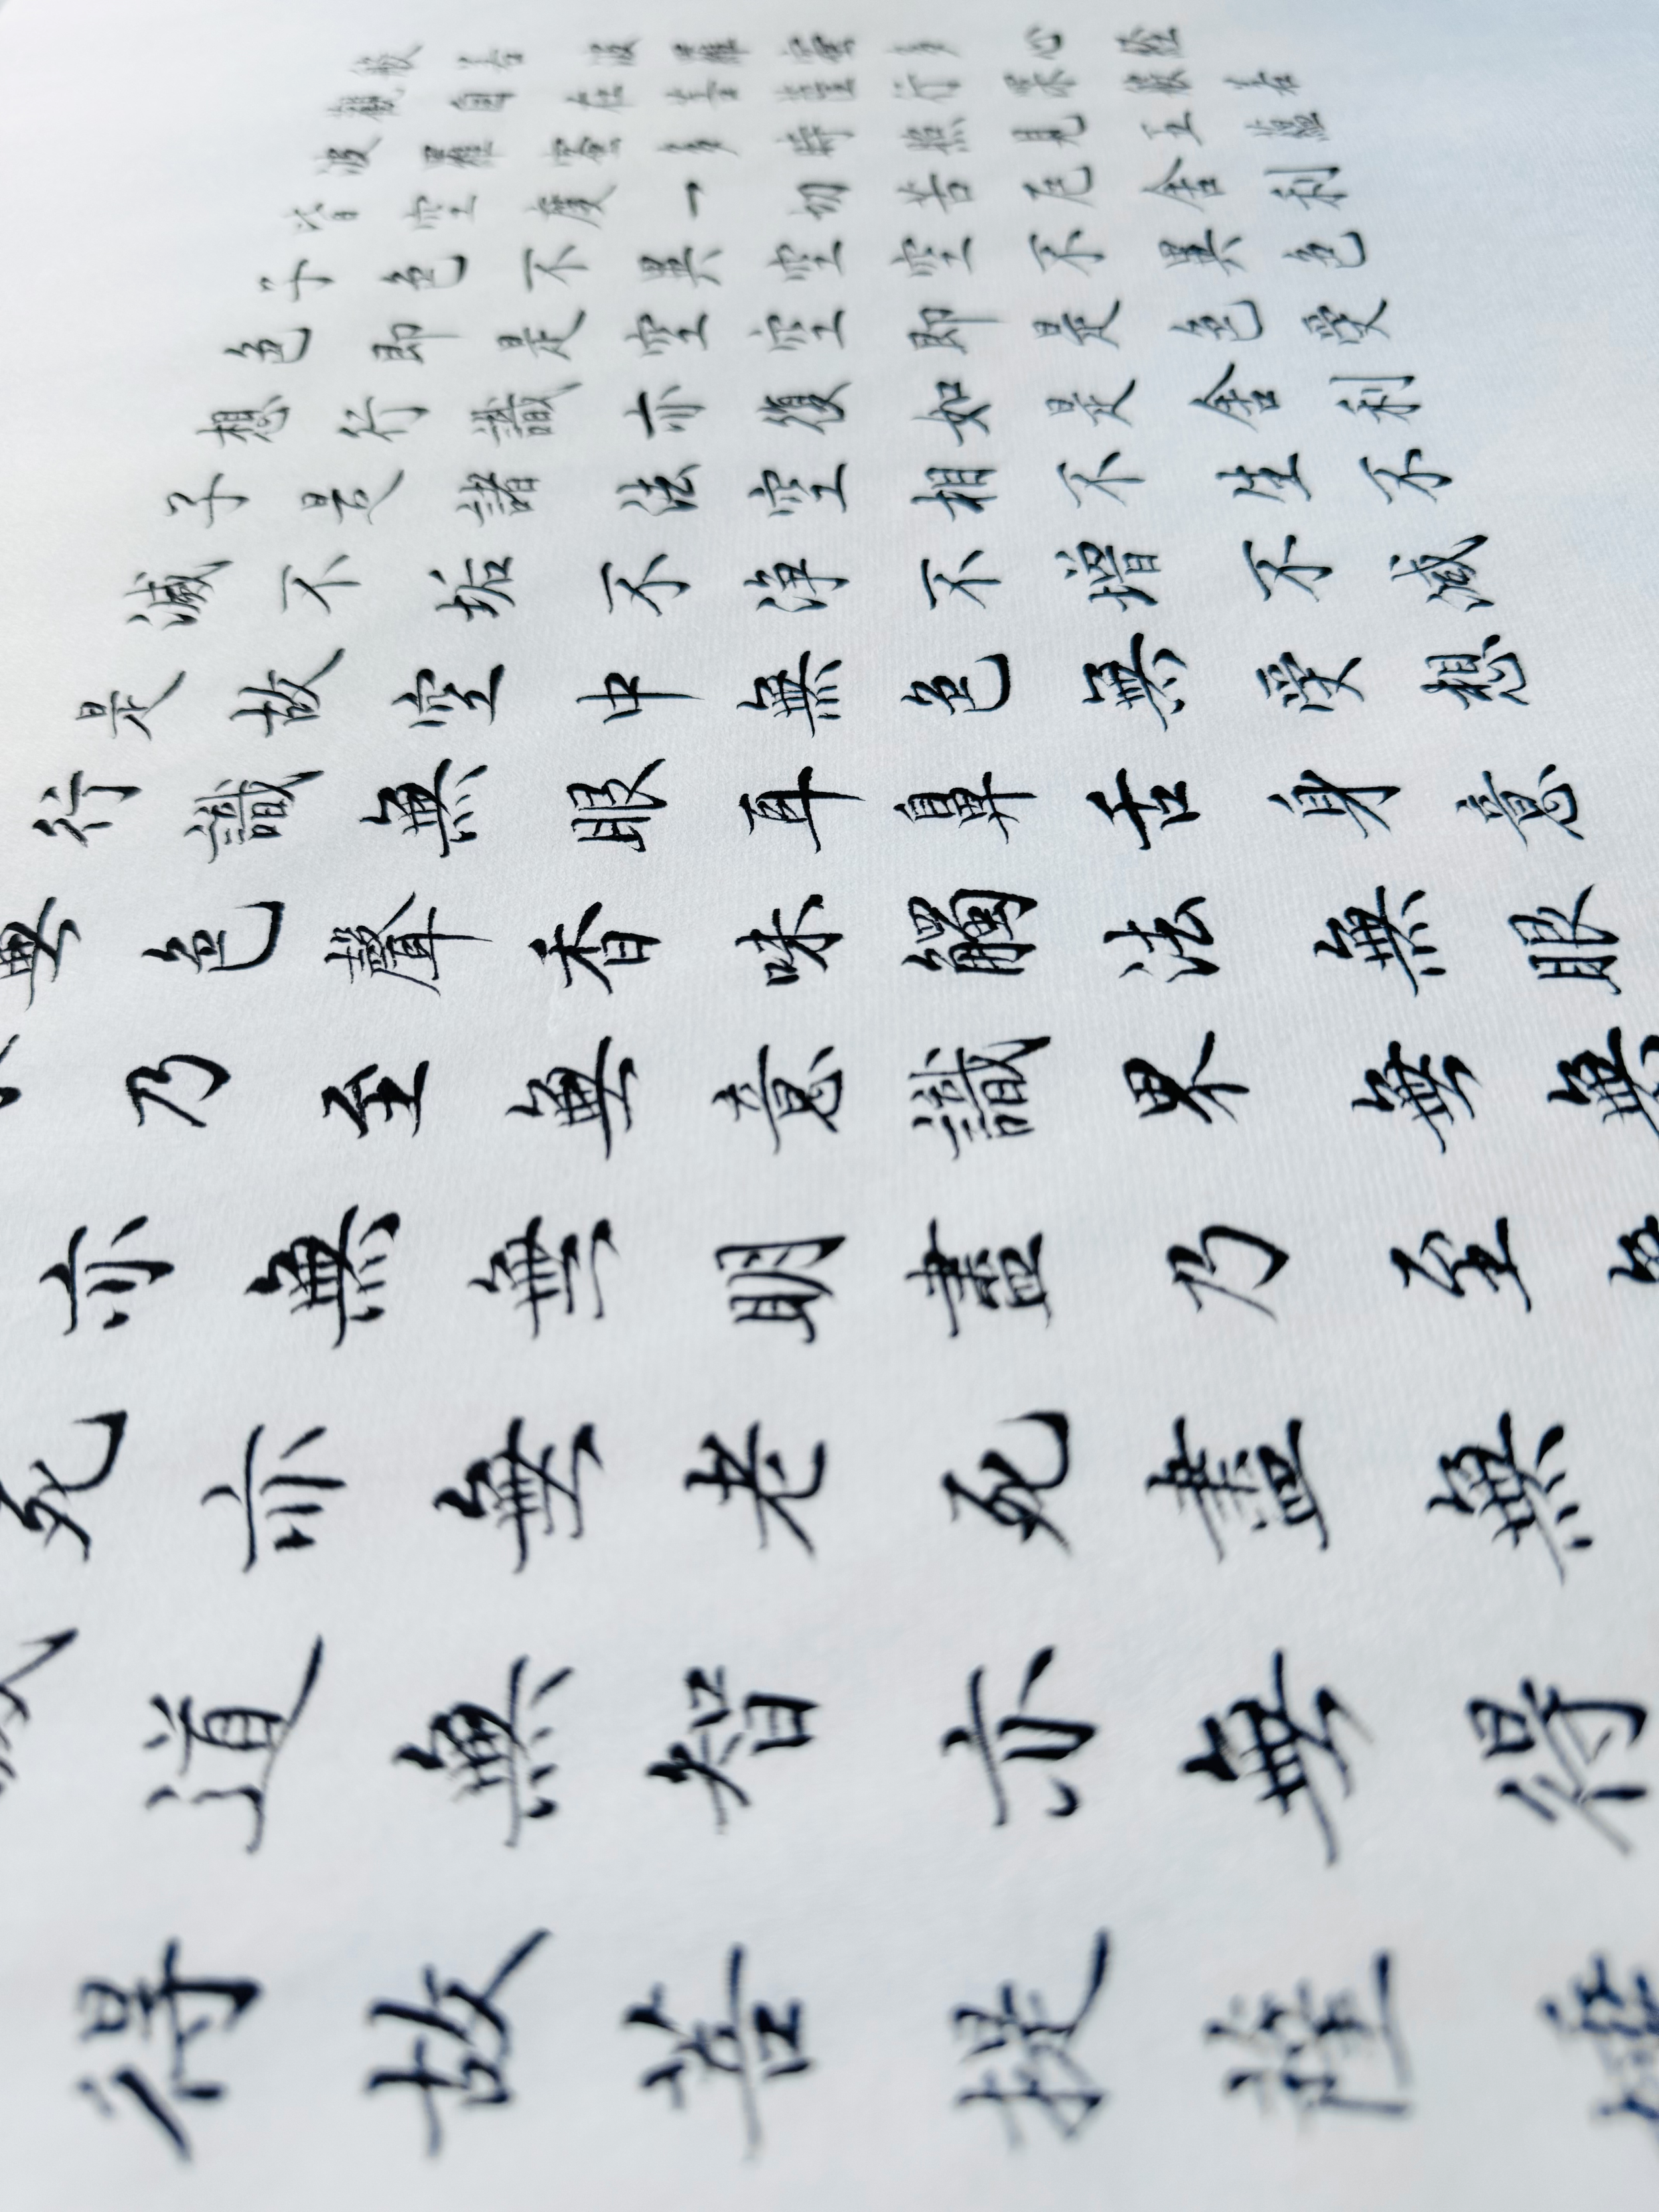 般若波羅蜜多心經
觀自在菩薩行深般若
波羅蜜多時照見五蘊
皆空度一切苦厄舍利
子色不異空空不異色
色即是空空即是色受
想行識亦復如是舍利
子是諸法空相不生不
滅不垢不淨不增不減
是故空中無色無受想
行識無眼耳鼻舌身意
無色聲香味觸法無眼
乃至無意識界無無
亦無無明盡乃至
死亦無老死盡無
道無智亦無得
得故菩提薩